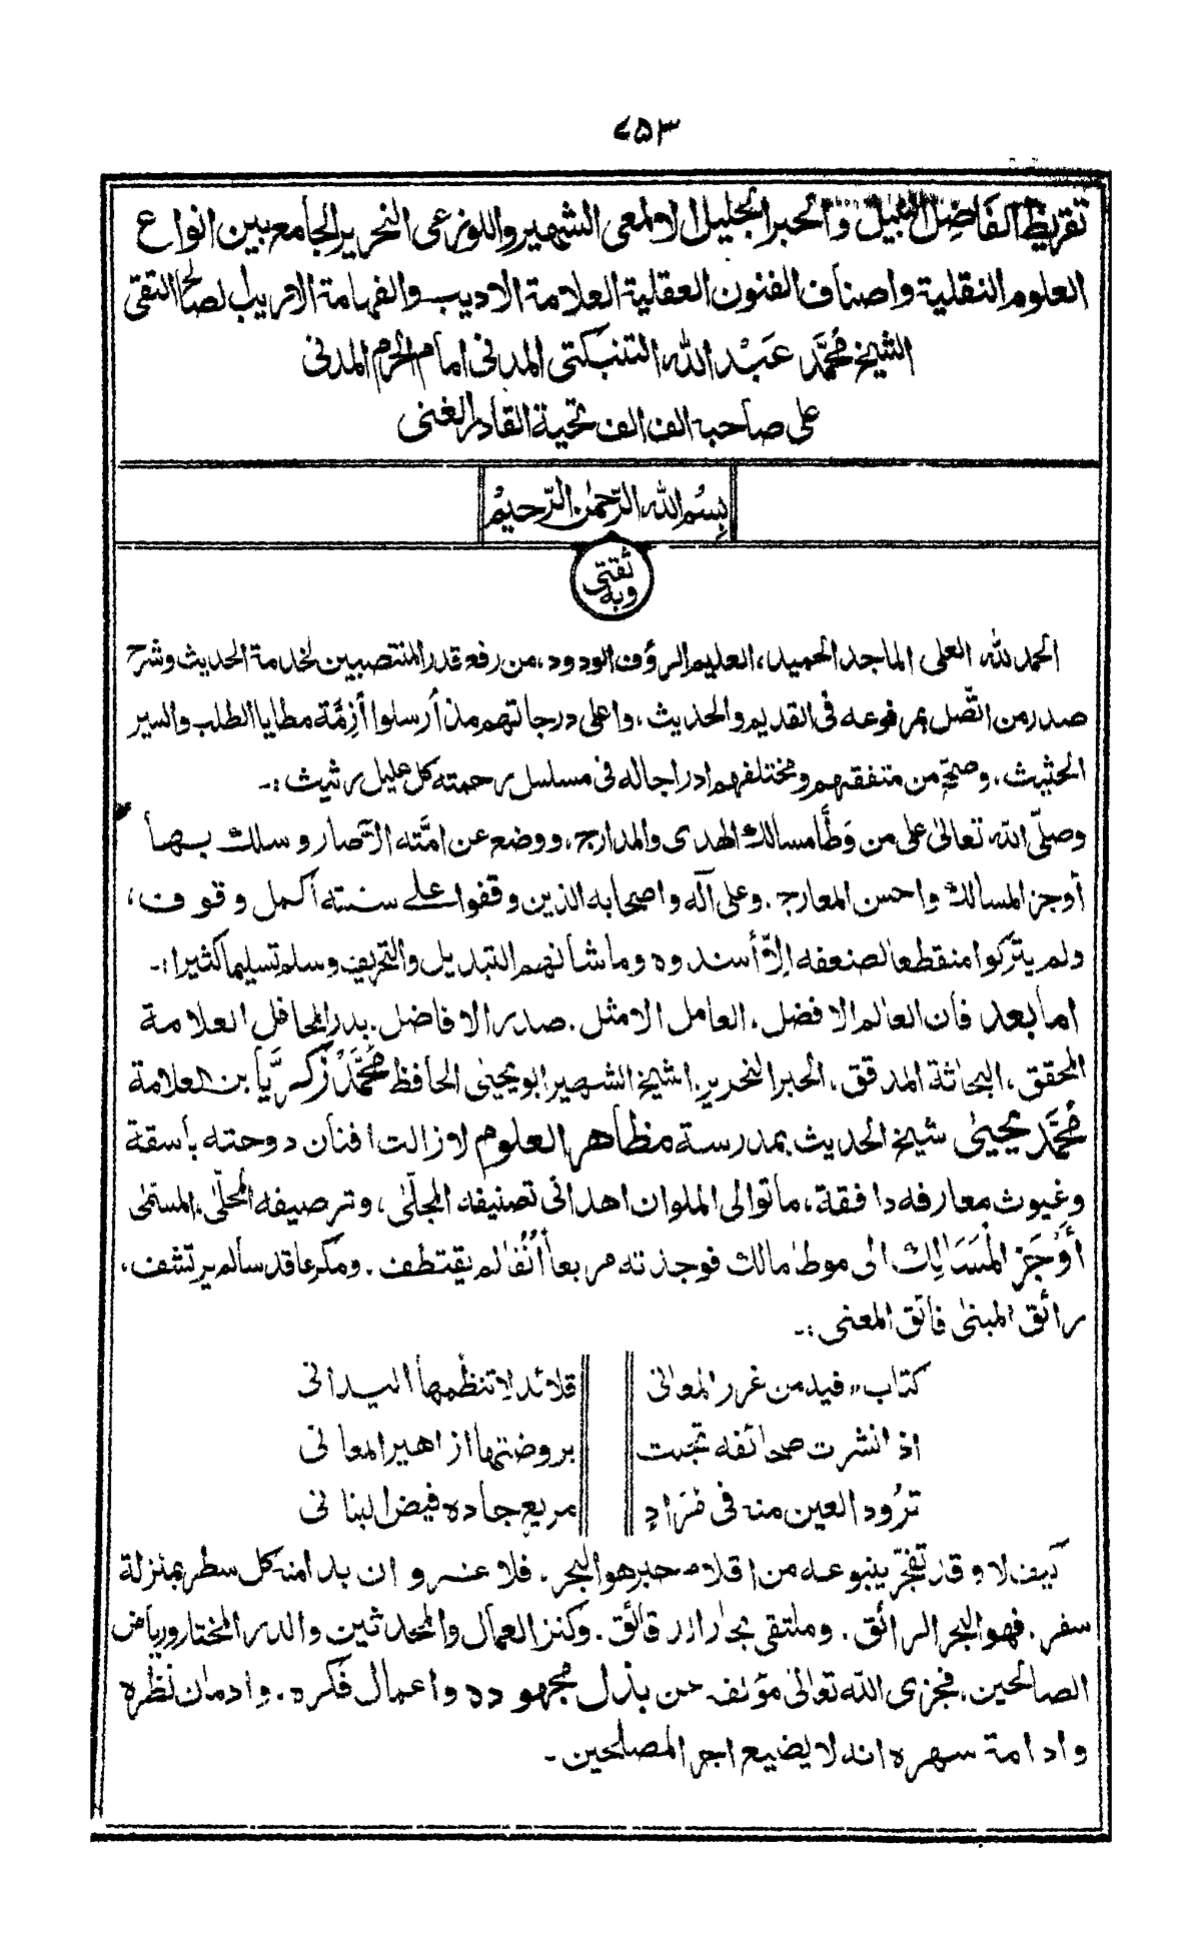 ٧٥٣
تقريظ الفاضل النبيل والحبر الجليل الالمعى الشهير واللوذعى النحرير الجامع بين انواع
العلوم النقلية واصناف الفنون العقلية العلامة الاديب والفهامة الاريب الصالح التقى
الشيخ محمَّد عَبْد الله التنبكتى المدنى امام الحرم المدنى
على صاحبه الف الف تحية القادر الغنى
بِسْمِ الله الرَّحمٰن الرَّحيمْ
وبه ثقتى
الحمد لله العلى الماجد الحميد، العليم الرؤف الودود، من رفع قدر المنتصبين لخدمة الحديث وشرح
صدر من اتّصل بمرفوعه فى القديم والحديث، واعلى درجاتهم مذ أرسلوا أزِمَّة مطايا الطلب والسير
الحثيث، وصحّح من متفقهم ومختلفهم ادراجا له فى مسلسل رحمته كل عليل رثيث :-
وصلّى الله تعالىٰ على من وَطَّأ مسالك الهدى والمدارج، ووضع عن امَّته الآصار وسلك بها
أوجز المسالك واحسن المعارج. وعلى آله واصحابه الذين وقفوا على سنته اكمل وقوف،
ولم يتركوا منقطعا لضعفه إلاّ أسندوه وما شأنهم التبديل والتحريف وسلم تسليما كثيرا :-
اما بعد فان العالم الافضل، العامل الامثل. صدر الافاضل، بدر المحافل العلامة
المحقق، البحاثة المدقق، الحبر النحرير، الشيخ الشهير ابو يحيىٰ الحافظ محمَّد زكريَّا بن العلامة
محمَّد يحيىٰ شيخ الحديث بمدرسة مظاهر العلوم لا زالت افنان دوحته باسقة
وغيوث معارفه دافقة، ما توالى الملوان اهدانى تصنيفه المجلّى، وترصيفه المحلّى، المسمّى
أوْجَزْ المَسَالِك الى موطا مالك فوجدته مربعاً أُنُفا لم يقتطف. ومكرعا قدسا لم يرتشف،
رائق المبنىٰ فائق المعنى :-
كتاب فيه من غرر المعانى قلائد لا تنظمها اليدانى
اذ انشرت صحائفه تجبت بروضتها ازاهير المعانى
ترُود العين منه فى مَرَادٍ مريع جاده فيض البنانى
كيف لا وقد تفجّر ينبوعه من اقلام حبر هو البحر. فلا غرو ان بدا منه كل سطر بمنزلة
سفر. فهو البحر الرائق. وملتقى بحار ازرقائق. وكنز العمال والمحدثين والدر المختار ورياض
الصالحين، فجزى الله تعالىٰ مؤلفه عن بذل مجهوده واعمال فكره. وادمان نظره
وادامة سهره انه لا يضيع اجر المصلحين -